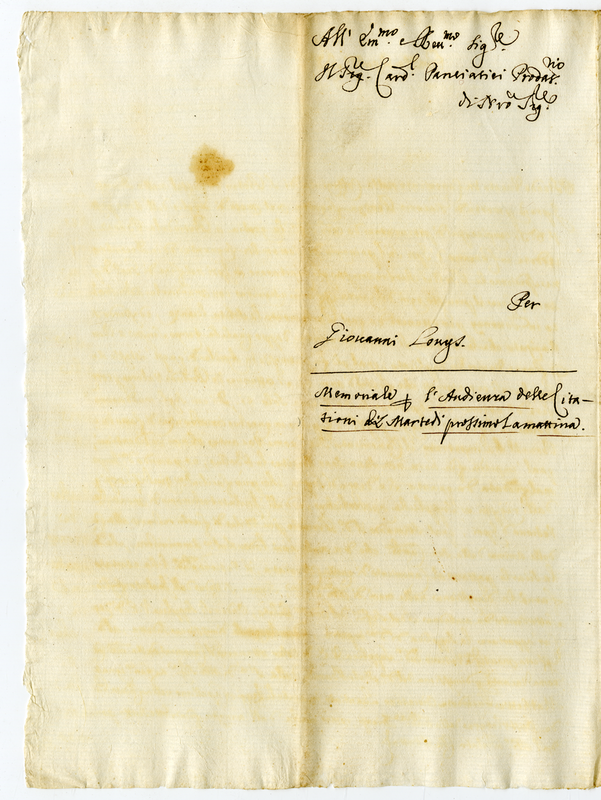 All' Em.mo e Reu.mo Sig.re
Il Sig.re Card.l Panciatici Prodat.rio
di N'ro Sig.re
Per
Giouanni Longs.
Memoriale p l'Audienza delle Cita-
tioni di Martedi prossimo lamattina.